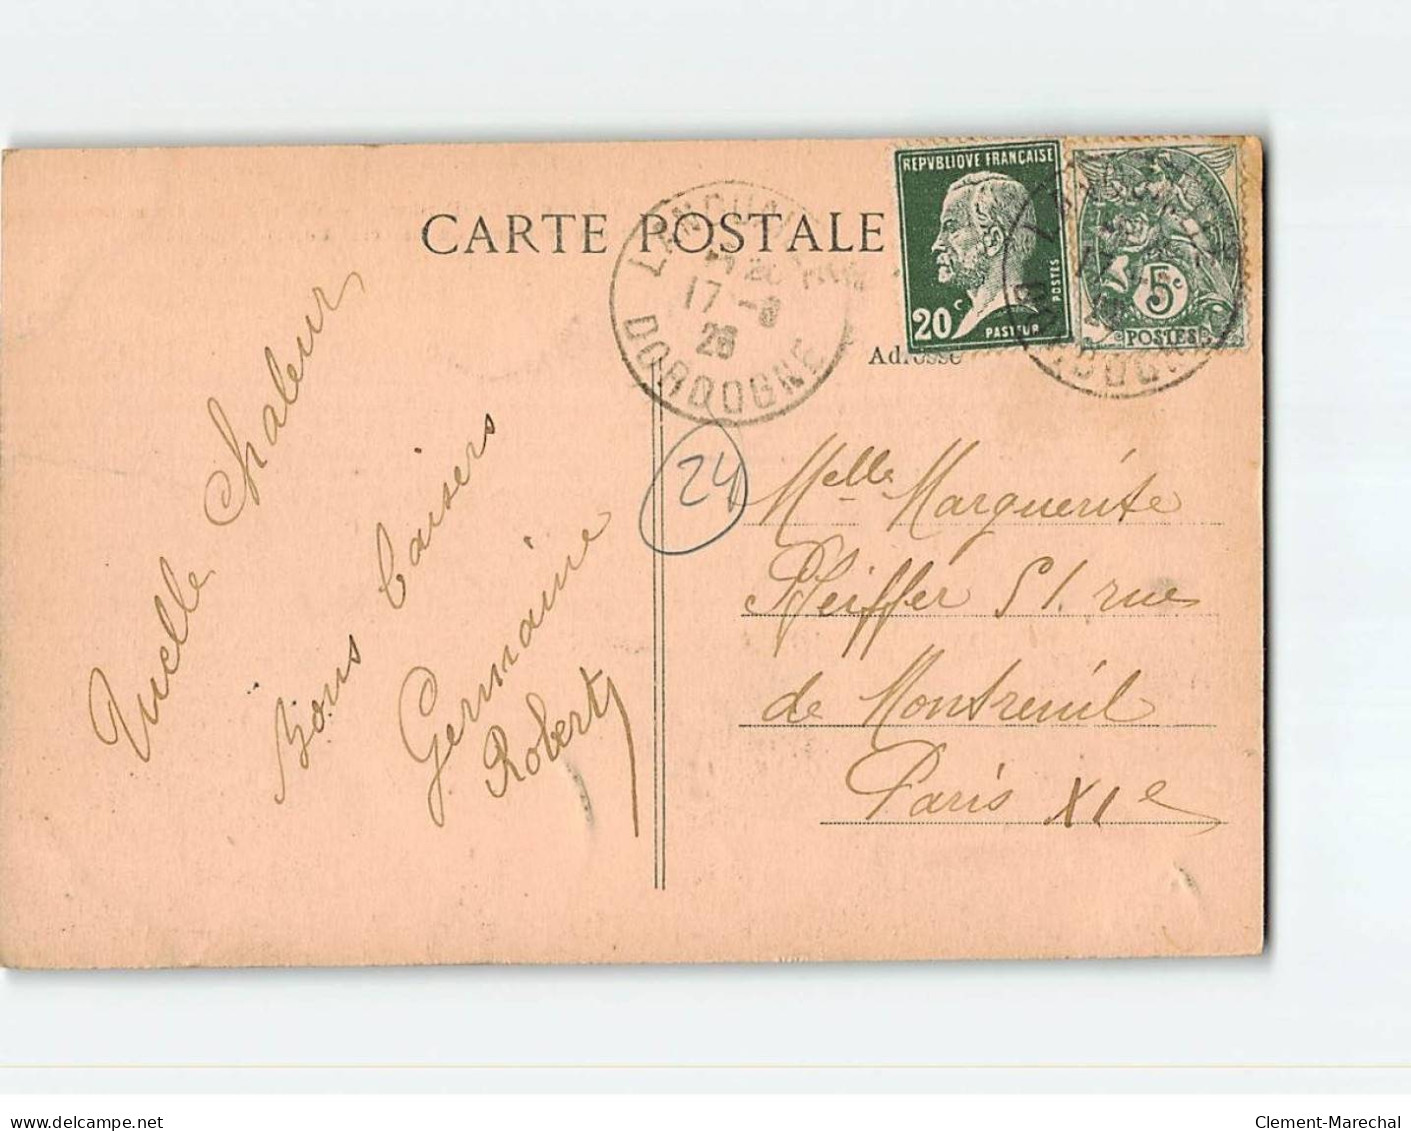 CARTE POSTALE
LANQUAIS
17 -8
26
DORDOGNE
REPVBLIQVE FRANÇAISE
20c
PASTEUR
POSTES
5c
POSTES
DORDOGNE
Adresse
24
Quelle Chaleur
Bons baisers
Germaine
Robert
Melle Marguerite
Pfeiffer 51. rue
de Montreuil
Paris XIe
www.delcampe.net
Clement-Marechal